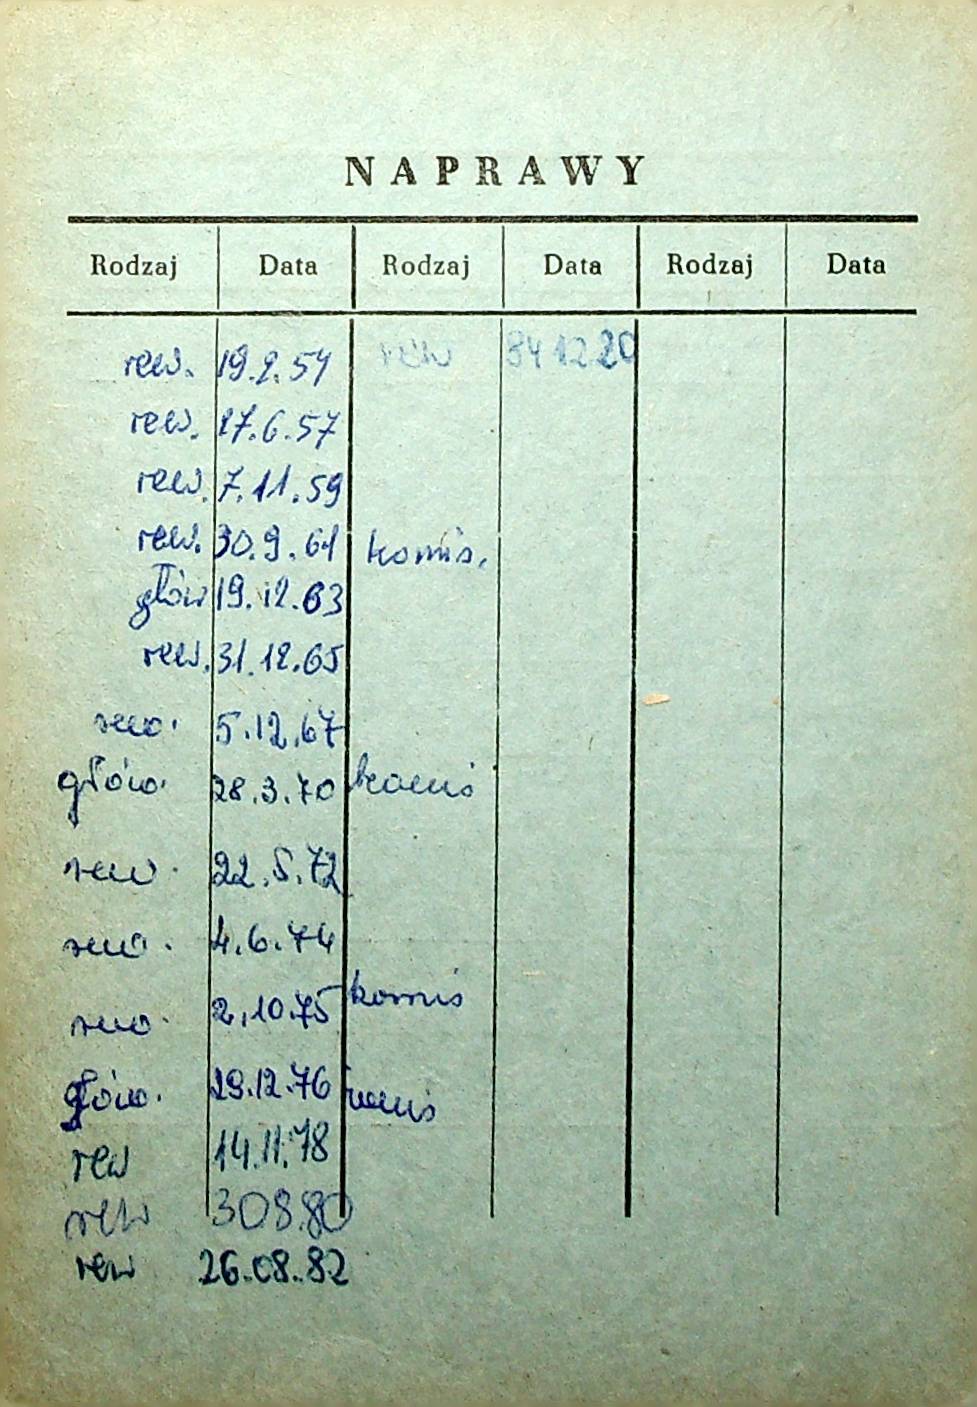 NAPRAWY
Rodzaj Data Rodzaj Data Rodzaj Data
rew. 19.2.54 rew 84 12.20
rew. 17.6.57
rew. 7.11.59
rew. 30.9.61 komis.
głów 19.12.63
rew. 31.12.65
rew. 5.12.67
głów. 28.3.70 komis
rew. 22.5.72
rew. 4.6.74
rew. 2.10.75 komis
głów. 29.12.76 komis
rew 14.11.78
rew 308.80
rew 26.08.82